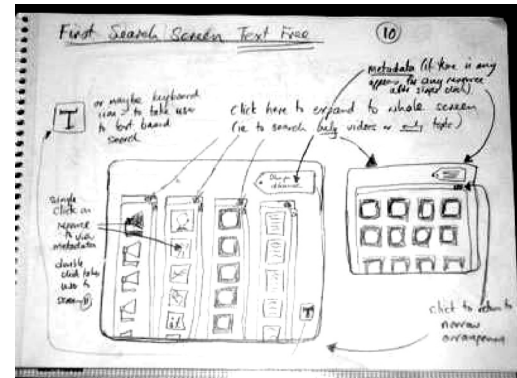 First Search Screen Text Free
10
metadata (if there is any
appears for any resource
after single click)
T
or maybe keyboard
icon to take user
to text based
search
click here to expand to whole screen
(ie to search only videos or only topic)
single
click on
resource
to view
metadata
double
click takes
user to
screen 11
T
click to return to
narrow
arrangement